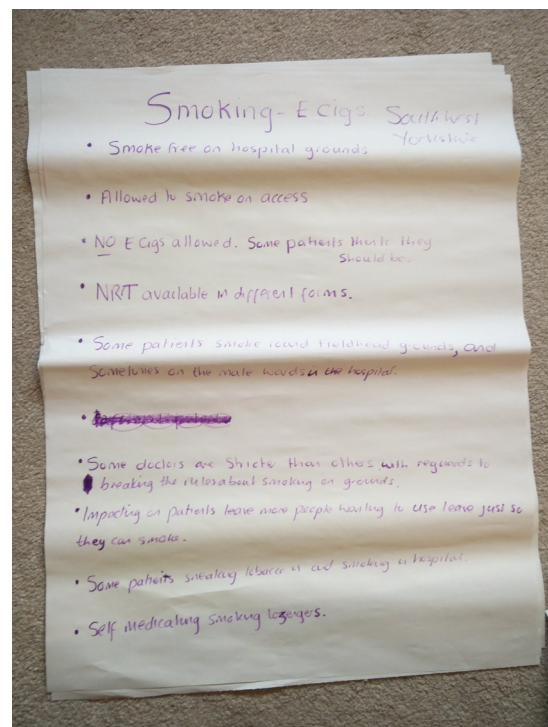 Smoking - E cigs South West
Yorkshire
• Smoke free on hospital grounds
• Allowed to smoke on access
• NO E cigs allowed. Some patients think they
should be.
• NRT available in different forms.
• Some patients smoke round fieldhead grounds, and
Sometimes on the male wards in the hospital.
•
• Some doctors are Stricter than others with reguards to
breaking the rules about smoking on grounds.
• Impacting on patients leave more people wanting to use leave just so
they can smoke.
• Some patients sneaking tobacco in and smoking in hospital.
• Self medicating smoking lozengers.